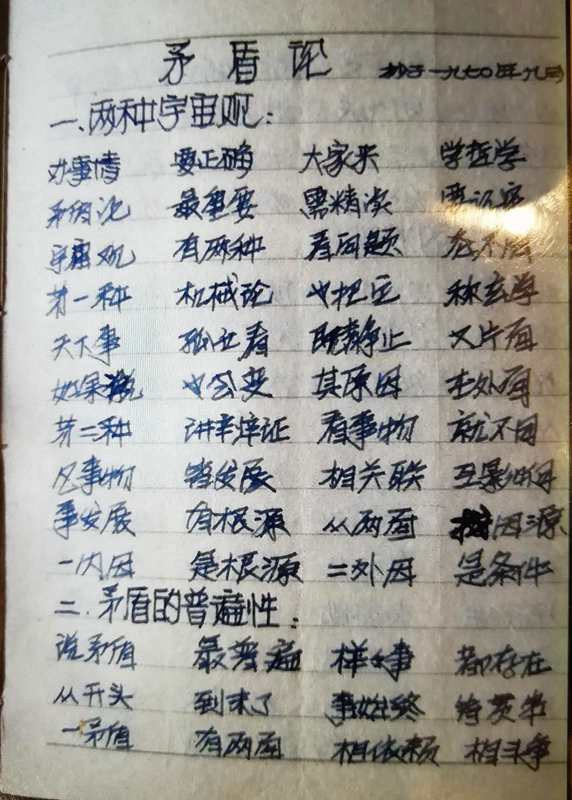 矛盾论 抄于一九七〇年九月
一、两种宇宙观:
办事情 要正确 大家来 学哲学
矛盾论 最重要 需精读
宇宙观 有两种 看问题 在不同
第一种 机械论 也把它 称玄学
天下事 孤立看 既静止 又片面
如果说 也会变 其原因 在外面
第二种 讲辩证 看事物 就不同
凡事物 皆发展 相关联 互影响
事发展 有根源 从两面 找因源
一内因 是根源 二外因 是条件
二、矛盾的普遍性:
说矛盾 最普遍 样々事 都存在
从开头 到末了 事始终 皆贯串
一矛盾 有两面 相依赖 相斗争